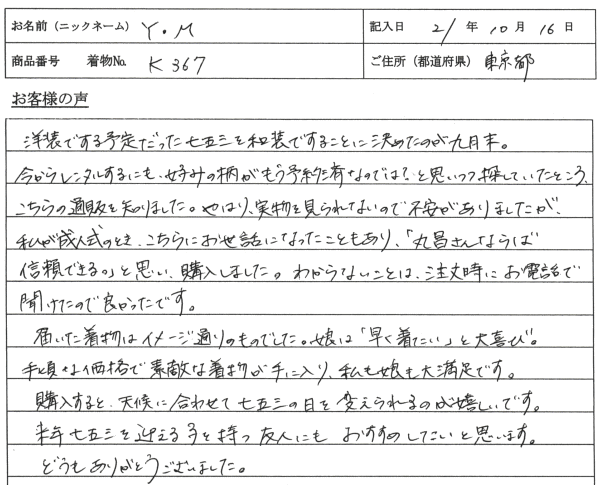 お名前(ニックネーム) Y・M 記入日 21年10月16日
商品番号 着物No. K367 ご住所(都道府県) 東京都
お客様の声
洋装でする予定だった七五三を和装ですることに決めたのが九月末。
今からレンタルするにも、好みの柄がもう予約済なのでは?と思いつつ探していたところ、
こちらの通販を知りました。やはり、実物を見られないので不安がありましたが、
私が成人式のとき、こちらにお世話になったこともあり、「丸昌さんならば
信頼できる。」と思い、購入しました。わからないことは、注文時にお電話で
聞けたので良かったです。
届いた着物はイメージ通りのものでした。娘は「早く着たい」と大喜び。
手頃な価格で素敵な着物が手に入り、私も娘も大満足です。
購入すると、天候に合わせて七五三の日を変えられるのが嬉しいです。
来年七五三を迎える子を持つ友人にもおすすめしたいと思います。
どうもありがとうございました。